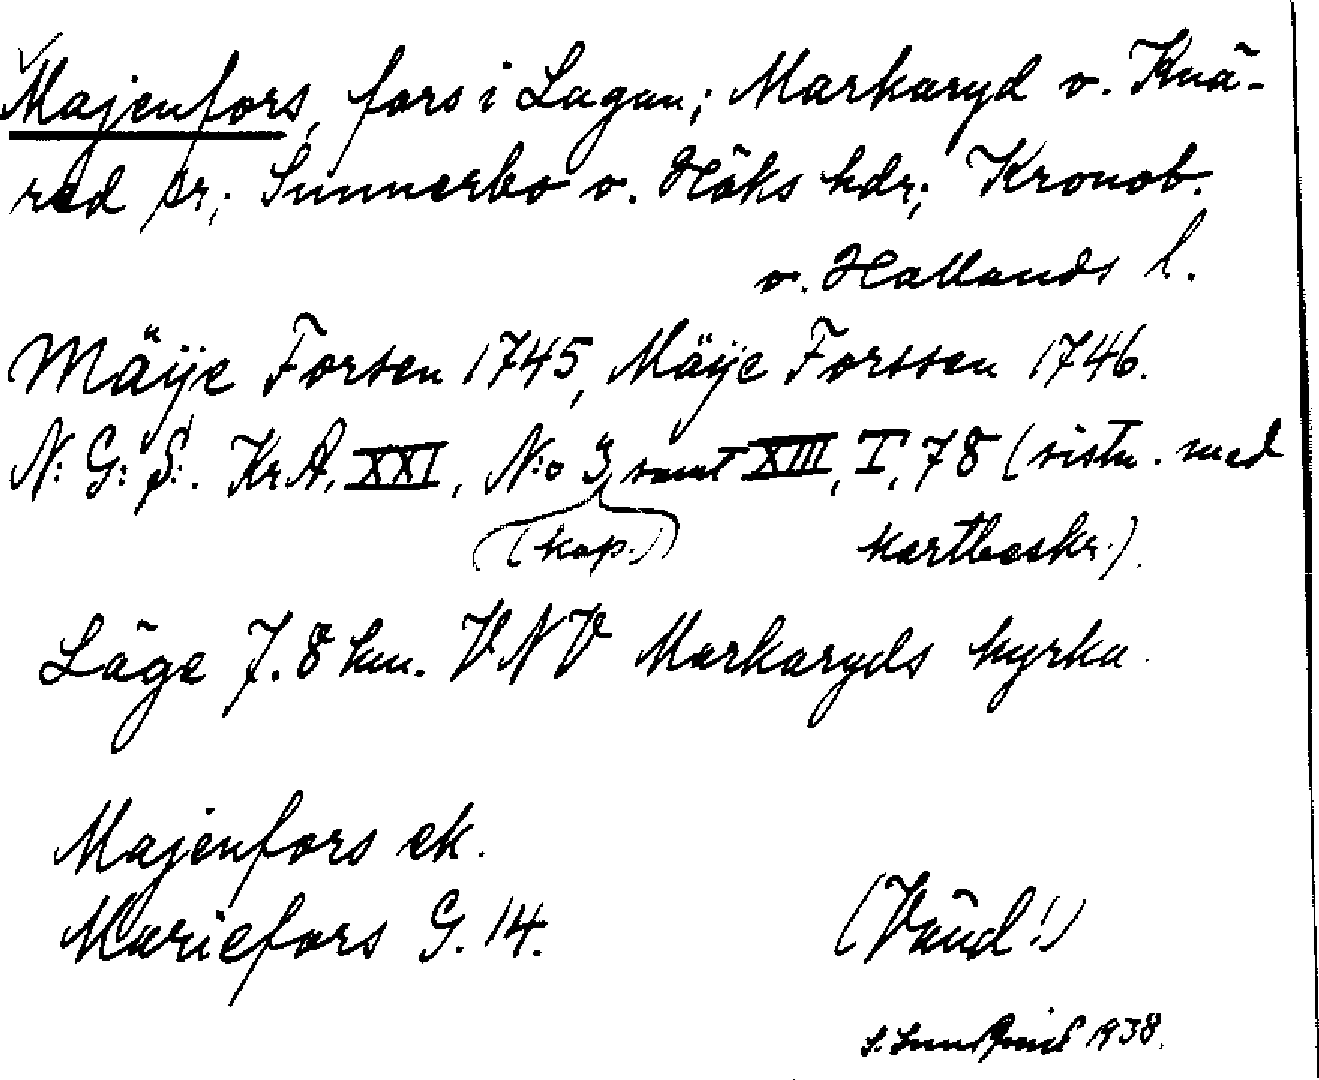 Majenfors, fors i Lagan; Markaryd o. Knä-
red sr; Sunnerbo o. Höks hdr; Kronob.
o. Hallands l.
Mäÿe Forsen 1745, Mäÿe Forssen 1746.
N: G: S: . Kr.A. XXI, N:o 3, samt XIII, I, 78 (sistn. med
(kop.) kartbeskr.).
Läge 7.8 km. VNV Markaryds kyrka.
Majenfors ek.
Mariefors G. 14.
(Vänd!)
1938.